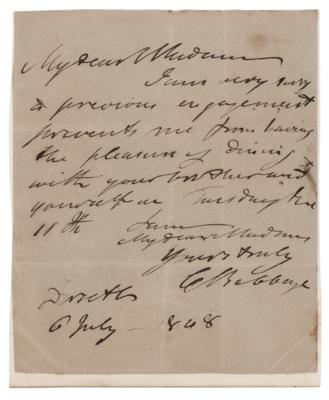 My dear Madam
I am very sorry
a previous engagement
prevents me from having
the pleasure of dining
with your brother and
yourself on Tuesday the
11th
I am
My dear Madam
Yours truly
C Babbage
Dorset
6 July 1848